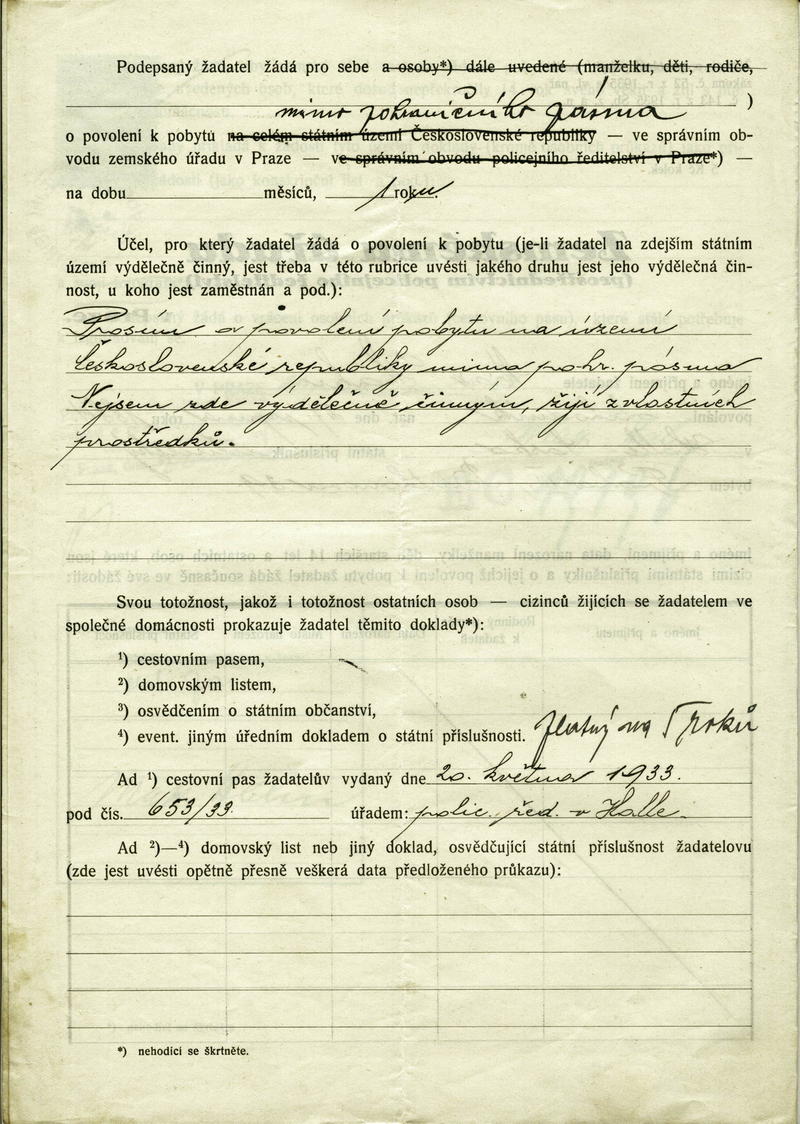 Podepsaný žadatel žádá pro sebe a osoby*) dále uvedené (manželku, děti, rodiče,
)
mimo pohraničního pásma
o povolení k pobytu na celém státním území Československé republiky — ve správním ob-
vodu zemského úřadu v Praze — ve správním obvodu policejního ředitelství v Praze*) —
na dobu měsíců, 1 roku.
Účel, pro který žadatel žádá o povolení k pobytu (je-li žadatel na zdejším státním
území výdělečně činný, jest třeba v této rubrice uvésti jakého druhu jest jeho výdělečná čin-
nost, u koho jest zaměstnán a pod.):
Prosím o povolení pobytu na území
Československé republiky mimo pohr. pásma
Nejsem zde výdělečně činným, žiji z vlastních
prostředků.
Svou totožnost, jakož i totožnost ostatních osob — cizinců žijících se žadatelem ve
společné domácnosti prokazuje žadatel těmito doklady*):
¹) cestovním pasem,
²) domovským listem,
³) osvědčením o státním občanství,
⁴) event. jiným úředním dokladem o státní příslušnosti. platný na 5 roků
Ad ¹) cestovní pas žadatelův vydaný dne 20. května 1933.
pod čís. 653/33. úřadem: polic. řed. v Halle.
Ad ²)—⁴) domovský list neb jiný doklad, osvědčující státní příslušnost žadatelovu
(zde jest uvésti opětně přesně veškerá data předloženého průkazu):
*) nehodící se škrtněte.